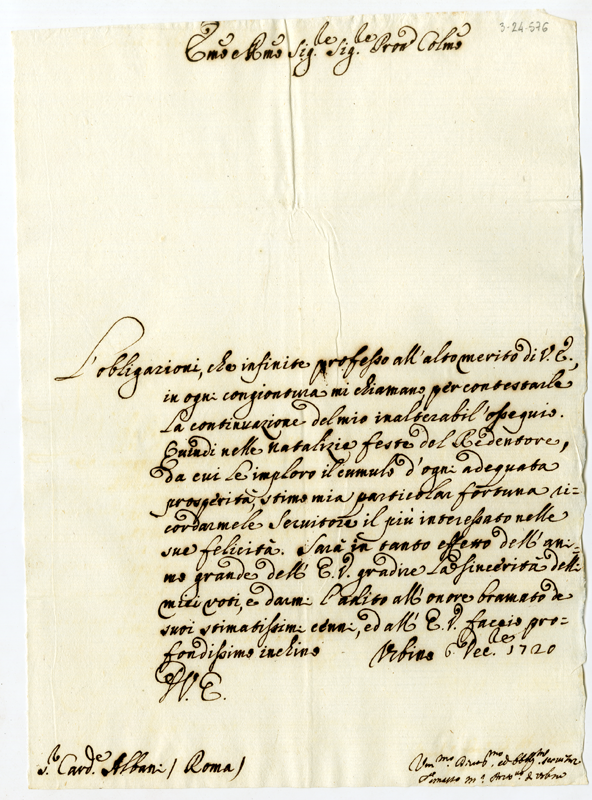 3-24-576
Emo e Rmo Sig.re Sig.re Pron Colmo
L'obligazioni, che infinite professo all'alto merito di V. E.,
in ogni congiontura mi chiamano per contestarle
la continuazione del mio inalterabil'ossequio.
Quindi nelle Natalizie feste del Redentore,
da cui le imploro il cumulo d'ogni adequata
prosperità, stimo mia particolar fortuna ri=
cordarmele Servitore il più interessato nelle
sue felicità. Sarà in tanto effetto dell'ani=
mo grande dell'E. V. gradire la sincerità delli
miei voti, e darmi l'adito all'onore bramato de
suoi stimatissimi cenni, ed all'E. V. faccio pro=
fondissimo inchino Urbino 6 Dec.re 1720
D. V. E.
S.r Card.e Albani / Roma /
Um.mo Divot.mo ed Obblig.mo Servitor
Tomasso M.a Arciv.o d'Urbino